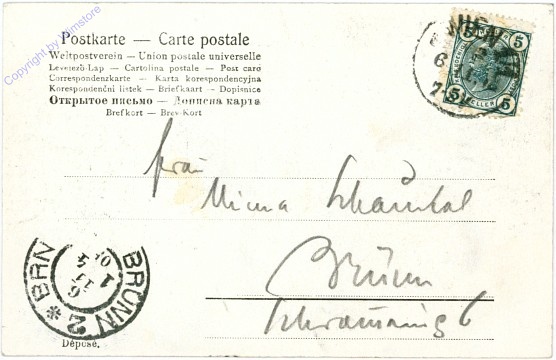 Copyright by Filmstore
Postkarte — Carte postale
Weltpostverein — Union postale universelle
Levelező-Lap — Cartolina postale — Post card
Correspondenzkarte — Karta korespondencyjna
Korespondenční listek — Briefkaart — Dopisnice
Открытое письмо — Дописна карта
Brefkort — Brev-Kort
WIEN
5 5
5 HELLER 5
Frau
Mima Schaukal
Brünn
BRÜNN 2 * BRN
Déposé.